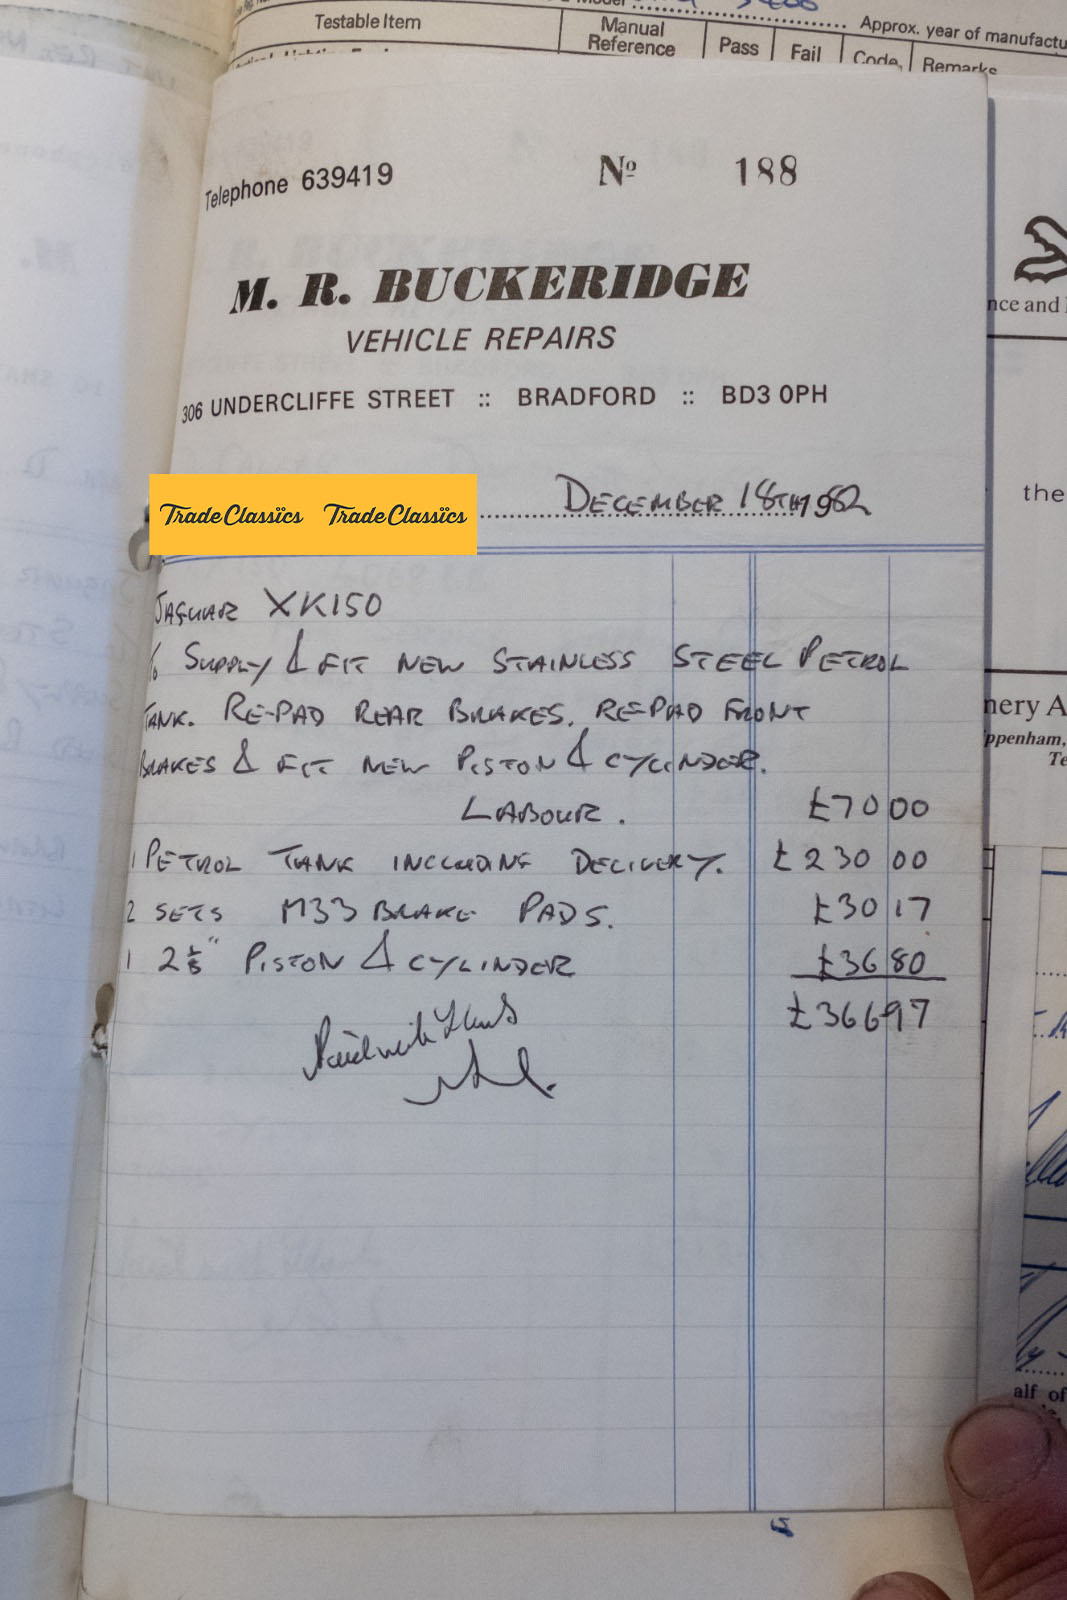 Testable Item
Manual Reference
Pass
Fail
Code
Remarks
Approx. year of manufactu
Telephone 639419
Nº 188
M. R. BUCKERIDGE
VEHICLE REPAIRS
306 UNDERCLIFFE STREET :: BRADFORD :: BD3 0PH
TradeClassics TradeClassics
DECEMBER 18TH 1982
JAGUAR XK150
To SUPPLY & FIT NEW STAINLESS STEEL PETROL
TANK. RE-PAD REAR BRAKES, RE-PAD FRONT
BRAKES & FIT NEW PISTON & CYLINDER.
LABOUR. £70 00
1 PETROL TANK INCLUDING DELIVERY. £230 00
2 SETS M33 BRAKE PADS. £30 17
1 2 1/8" PISTON & CYLINDER £36 80
£366 97
Paid with Thanks
nce and
the
nery A
ppenham,
Te
alf of